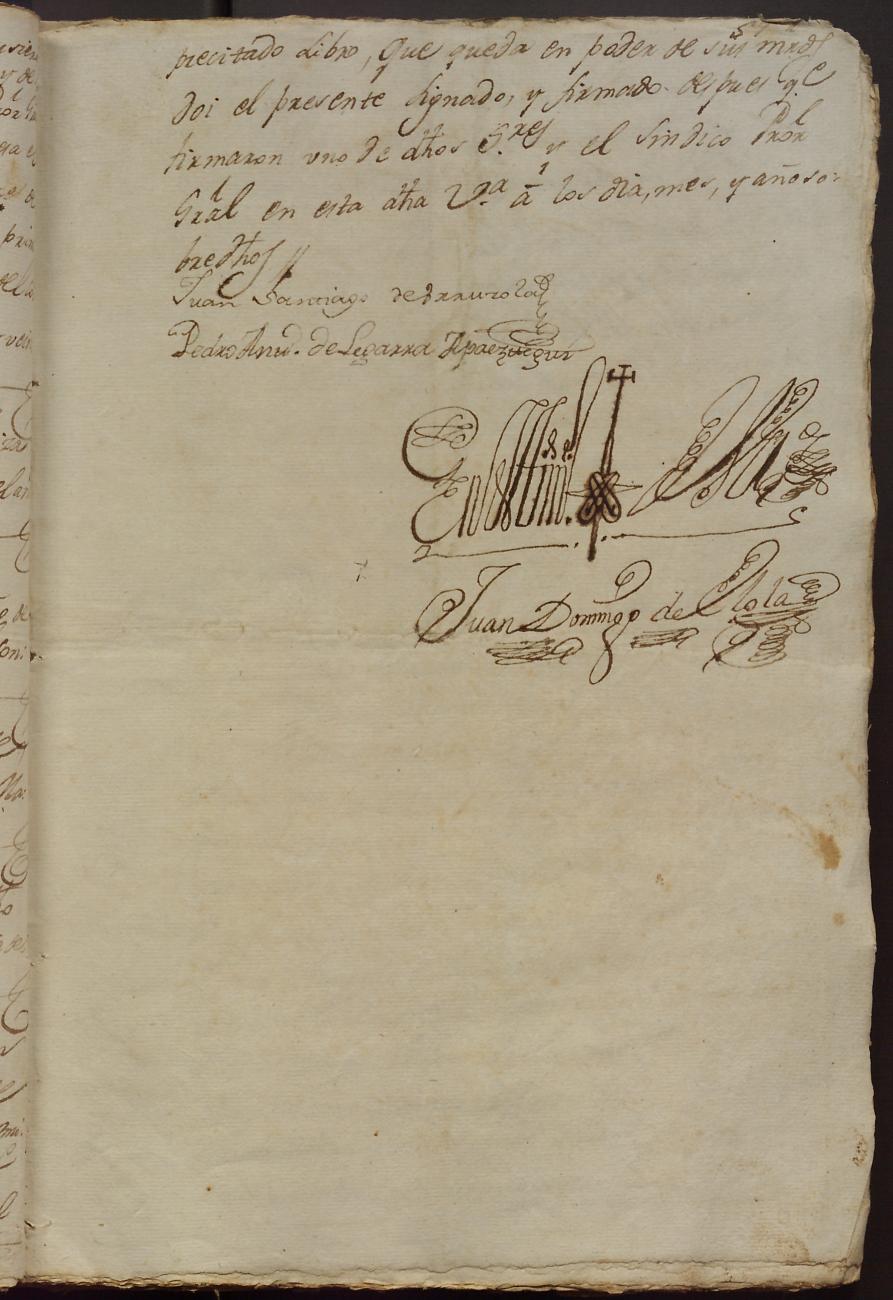 precitado Libro, que queda en poder de sus mrds
Doi el presente signado, y firmado despues qe
firmaron uno de dhos Sres y el Sindico Pror
Gral en esta dha Va. â los dia, mes, y año so-
bredhos //
Juan Santiago de
Pedro Anto. de Legarra Apaezteguí
En testimo. de Verd
Juan Domingo de